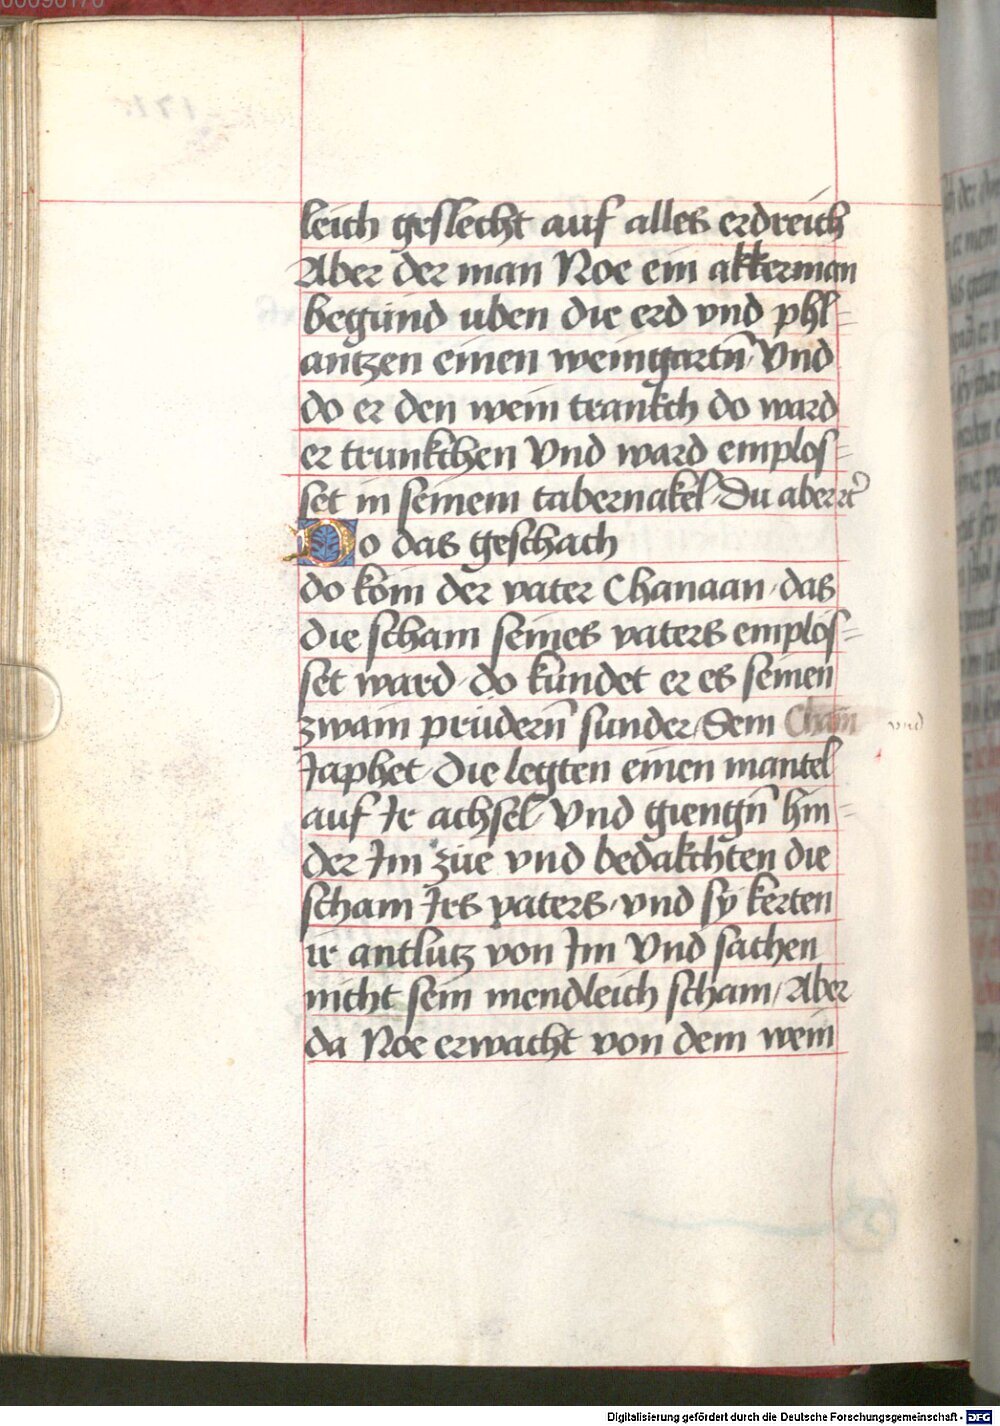 leich geslecht auf alles erdreich
Aber der man Noe ein akkerman
begund uben die erd vnd phl=
antzen einen weingartn̄ Vnd
do er den wein trankch do ward
er trunkchen Vnd ward emplos=
set in seinem tabernakel Du aber
Do das geschach
do kom der vater Chanaan das
die scham seines vaters emplos=
set ward do kundet er es seinen
zwain prüdern̄ sunder Sem Cham vnd
Japhet Die legten einen mantel
auf Ir achsel Vnd giengn̄ hin=
der Im züe vnd bedakchten die
scham Irs vaters vnd sÿ kerten
ir antlutz von Im Vnd sachen
nicht sein mendleich scham Aber
da Noe erwacht von dem wein
Digitalisierung gefördert durch die Deutsche Forschungsgemeinschaft - DFG